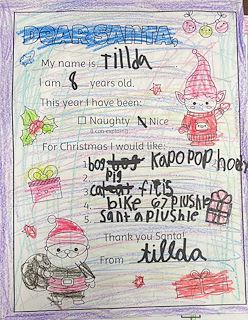 DEAR SANTA,
My name is Tillda
I am 8 years old.
This year I have been:
Naughty Nice
(I can explain)
For Christmas I would like:
1. bog KAPO POP
2. pig
3.
4. bike G7 plushie
5. santa plushie
Thank you Santa!
From tillda